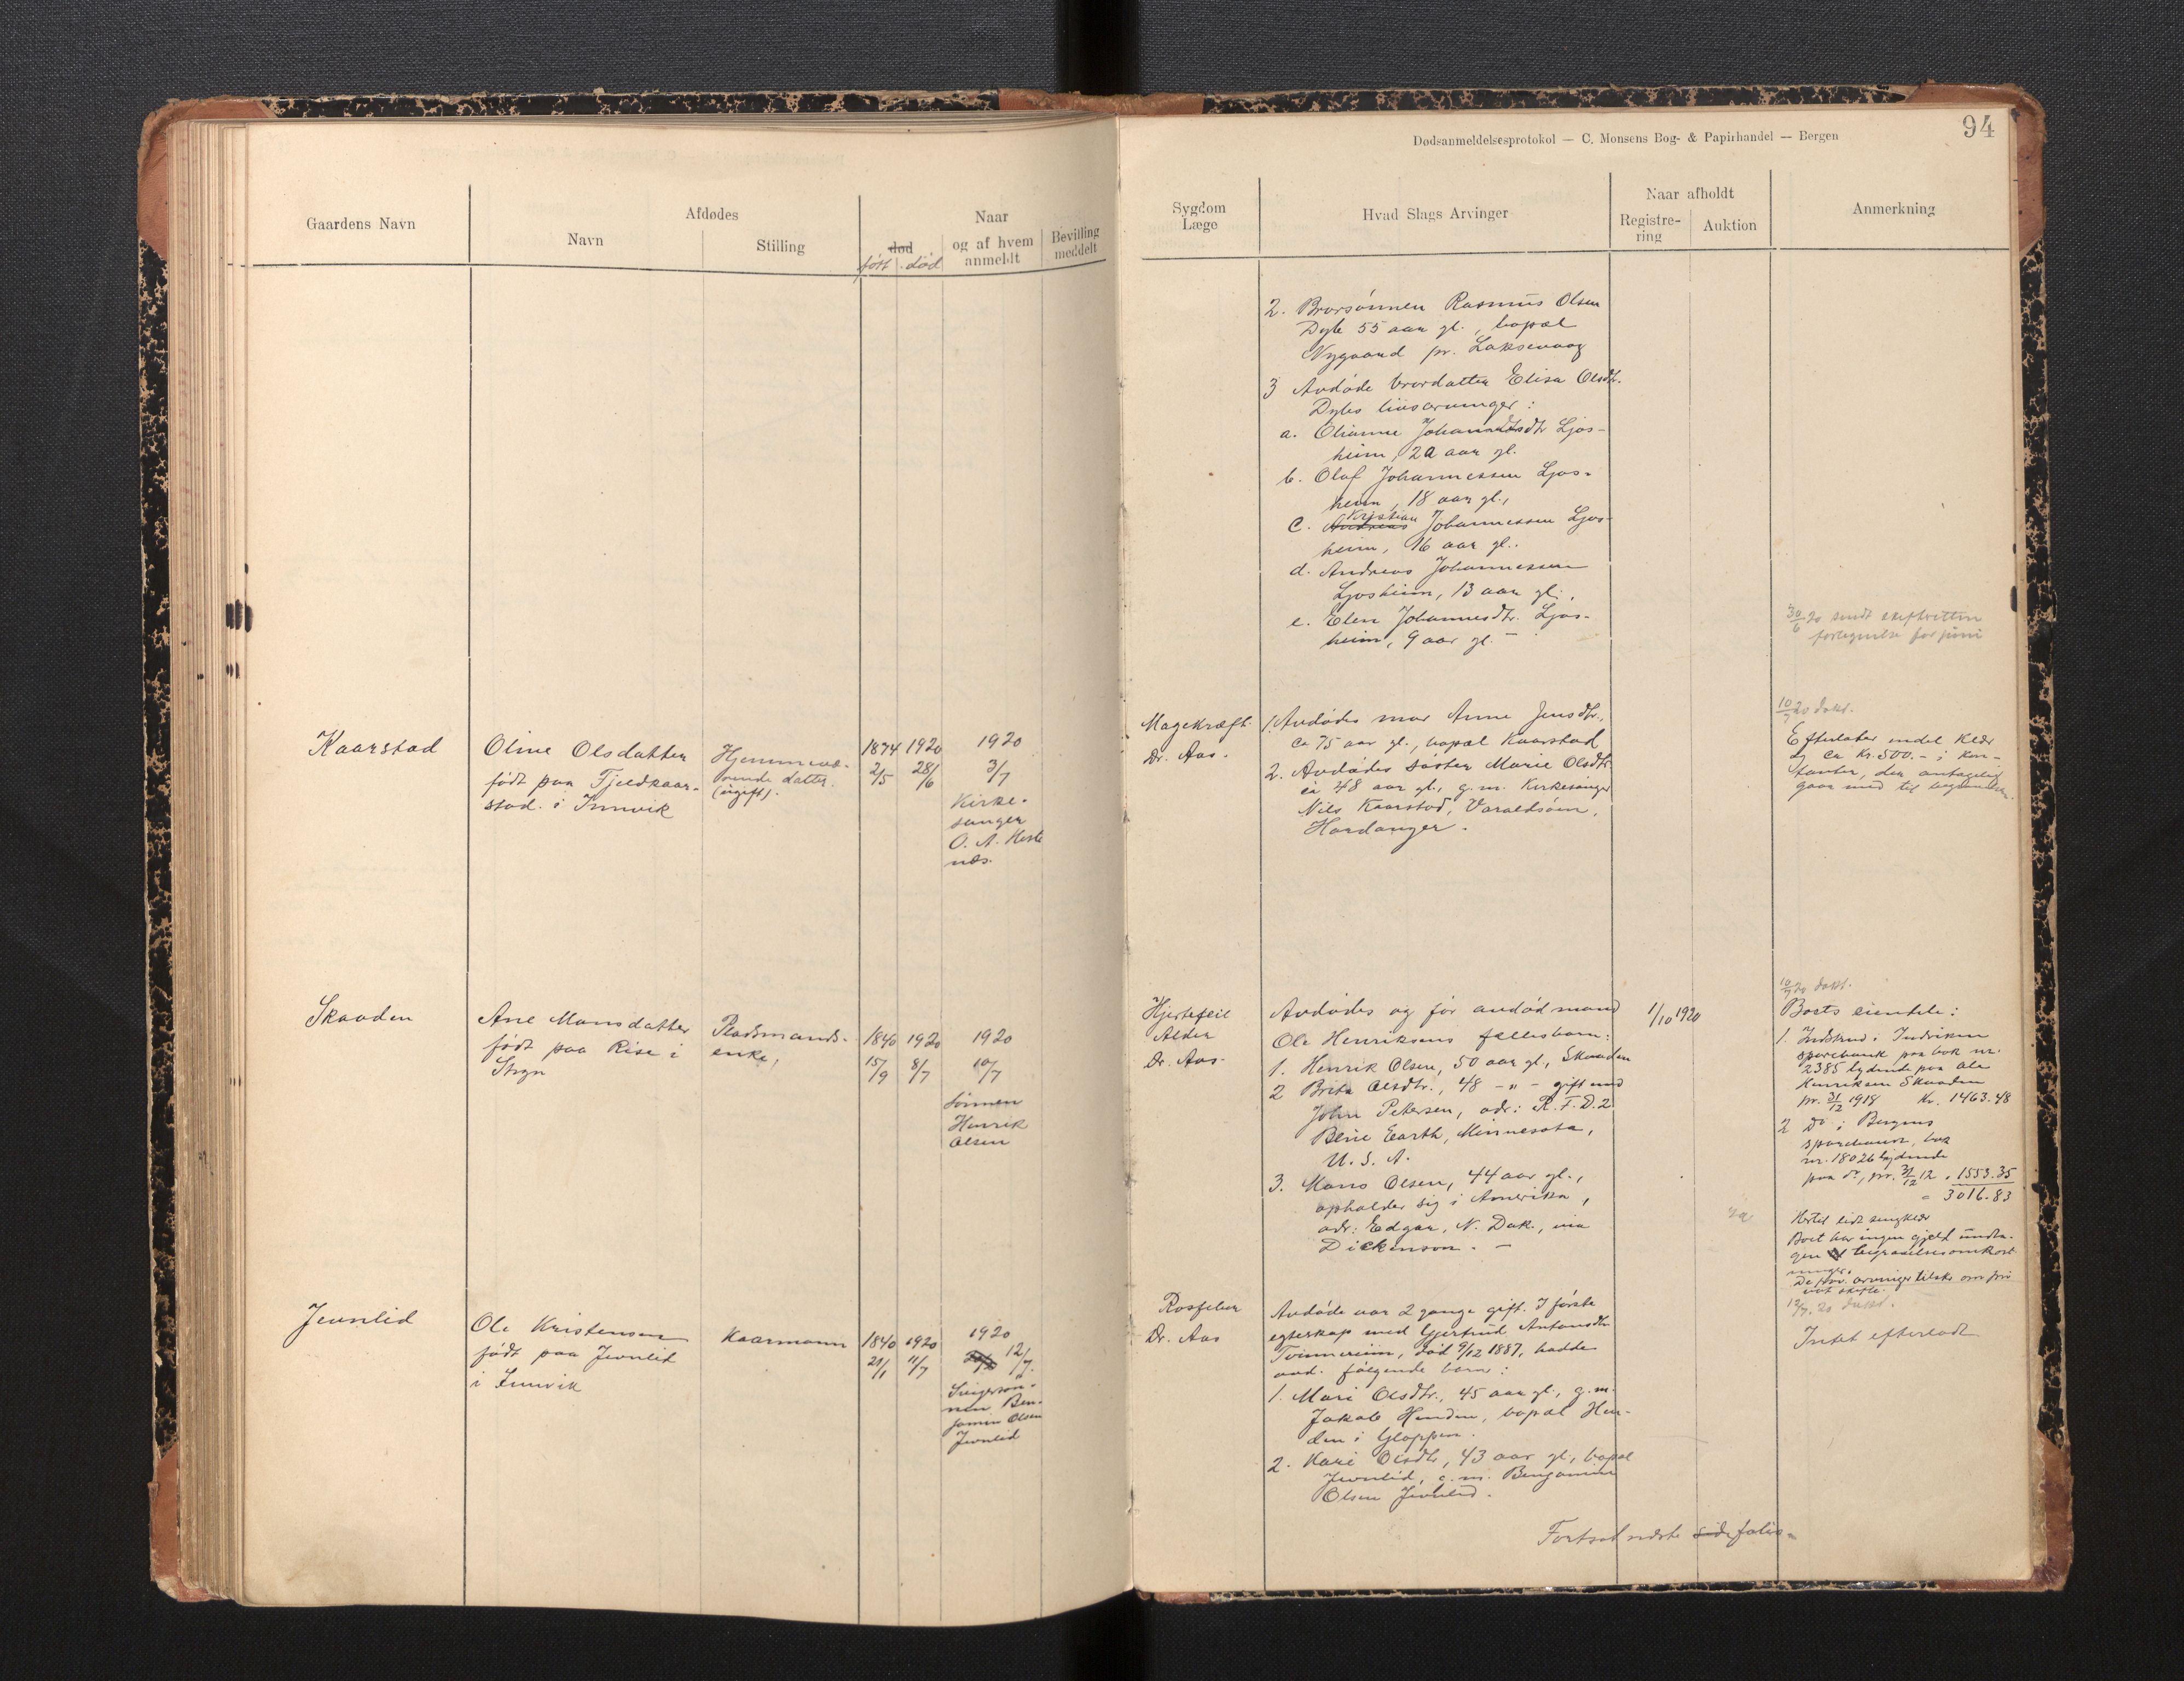 Dødsanmeldelsesprotokol — C. Monsens Bog- & Papirhandel — Bergen
94
Gaardens Navn
Afdødes
Navn
Stilling
død
født død
Naar
og af hvem
anmeldt
Bevilling
meddelt
Sygdom
Læge
Hvad Slags Arvinger
Naar afholdt
Registre-
ring
Auktion
Anmerkning
2. Brorsønnen Rasmus Olsen
Dybe 55 aar gl., bopæl
Nygaard pr. Laksevaag
3 Avdøde brordatter Elisa Olsdtr.
Dybes livsarvinger:
a. Olianne Johannesdtr Ljos-
heim, 22 aar gl.
b. Olaf Johannessen Ljos-
heim, 18 aar gl.,
Kristian
c. Andreas Johannessen Ljos-
heim, 16 aar gl..
d. Andreas Johannessen
Ljosheim, 13 aar gl.,
e. Elen Johannesdtr. Ljos-
heim, 9 aar gl. –
30/6 20 sendt skifteretten
fortegnelse for juni
Kaarstad
Oline Olsdatter
født paa Fjeldkaar-
stad i Innvik
Hjemmevæ-
rende datter
(ugift).
1874 1920
2/5 28/6
1920
3/7
Kirke-
sanger
O. A. Heste
næs.
Magekræft
Dr. Aas.
1. Avdødes mor Anne Jensdtr.,
ca 75 aar gl., bopæl Kaarstad
2. Avdødes søster Marie Olsdtr.
ca 48 aar gl., g.m. Kirkesanger
Nils Kaarstad, Varaldsøen,
Hardanger.
10/7 20 dokt.
Efterlater endel klær
og ca kr. 500.- i kon-
tanter, der antagelig
gaar med til begravelsen.
Skaaden
Ane Monsdatter
født paa Rise i
Stryn
Pladsmands-
enke,
1840 1920
15/9 8/7
1920
10/7
Sønnen
Henrik
Olsen
Hjertefeil
Alder
Dr. Aas.
Avdødes og før avdød mand
Ole Henriksens fællesbarn:
1. Henrik Olsen, 50 aar gl., Skaaden
2 Brita Olsdtr., 48 -"- gift med
John Petersen, adr: R.F.D.2
Blue Earth, Minnesota,
U.S.A.
3. Mons Olsen, 44 aar gl.,
opholder sig i Amerika,
adr: Edgar, N. Dak., via
Dickenson. –
1/10 1920
10/7 20 dokt.
Boets eiendele:
1. Indskud i Indviken
sparebank paa bok nr.
2385 lydende paa Ole
Henriksen Skaaden
pr. 31/12 1918 Kr. 1463.48
2 Do i Bergens
sparebank, bok
nr. 18026 lydende
paa do, pr. 31/12 12 " 1553.35
" 3016.83
Hertil lidt sengklær
Boet har ingen gjeld undta-
gen begravelsesomkost-
ninger.
De arvinger tilskr. om pri-
vat skifte.
Jevnlid
Ole Kristensen
født paa Jevnlid
i Innvik
Kaarmann
1840 1920
21/1 11/7
1920
12/7.
Svigersøn-
nen Ben-
jamin Olsen
Jevnlid
Rosfeber
Dr. Aas
Avdøde var 2 gange gift. I første
egteskap med Gjertrud Antonsdtr
Tvinnereim, død 9/12 1887, hadde
avd. følgende barn:
1. Mari Olsdtr., 45 aar gl., g.m.
Jakob Henden, bopæl Hen-
den i Gloppen.
2. Kari Olsdtr, 43 aar gl., bopæl
Jevnlid, g.m. Benjamin
Olsen Jevnlid.
12/7. 20 dokt.
Intet efterladt
Fortsat næste side folio